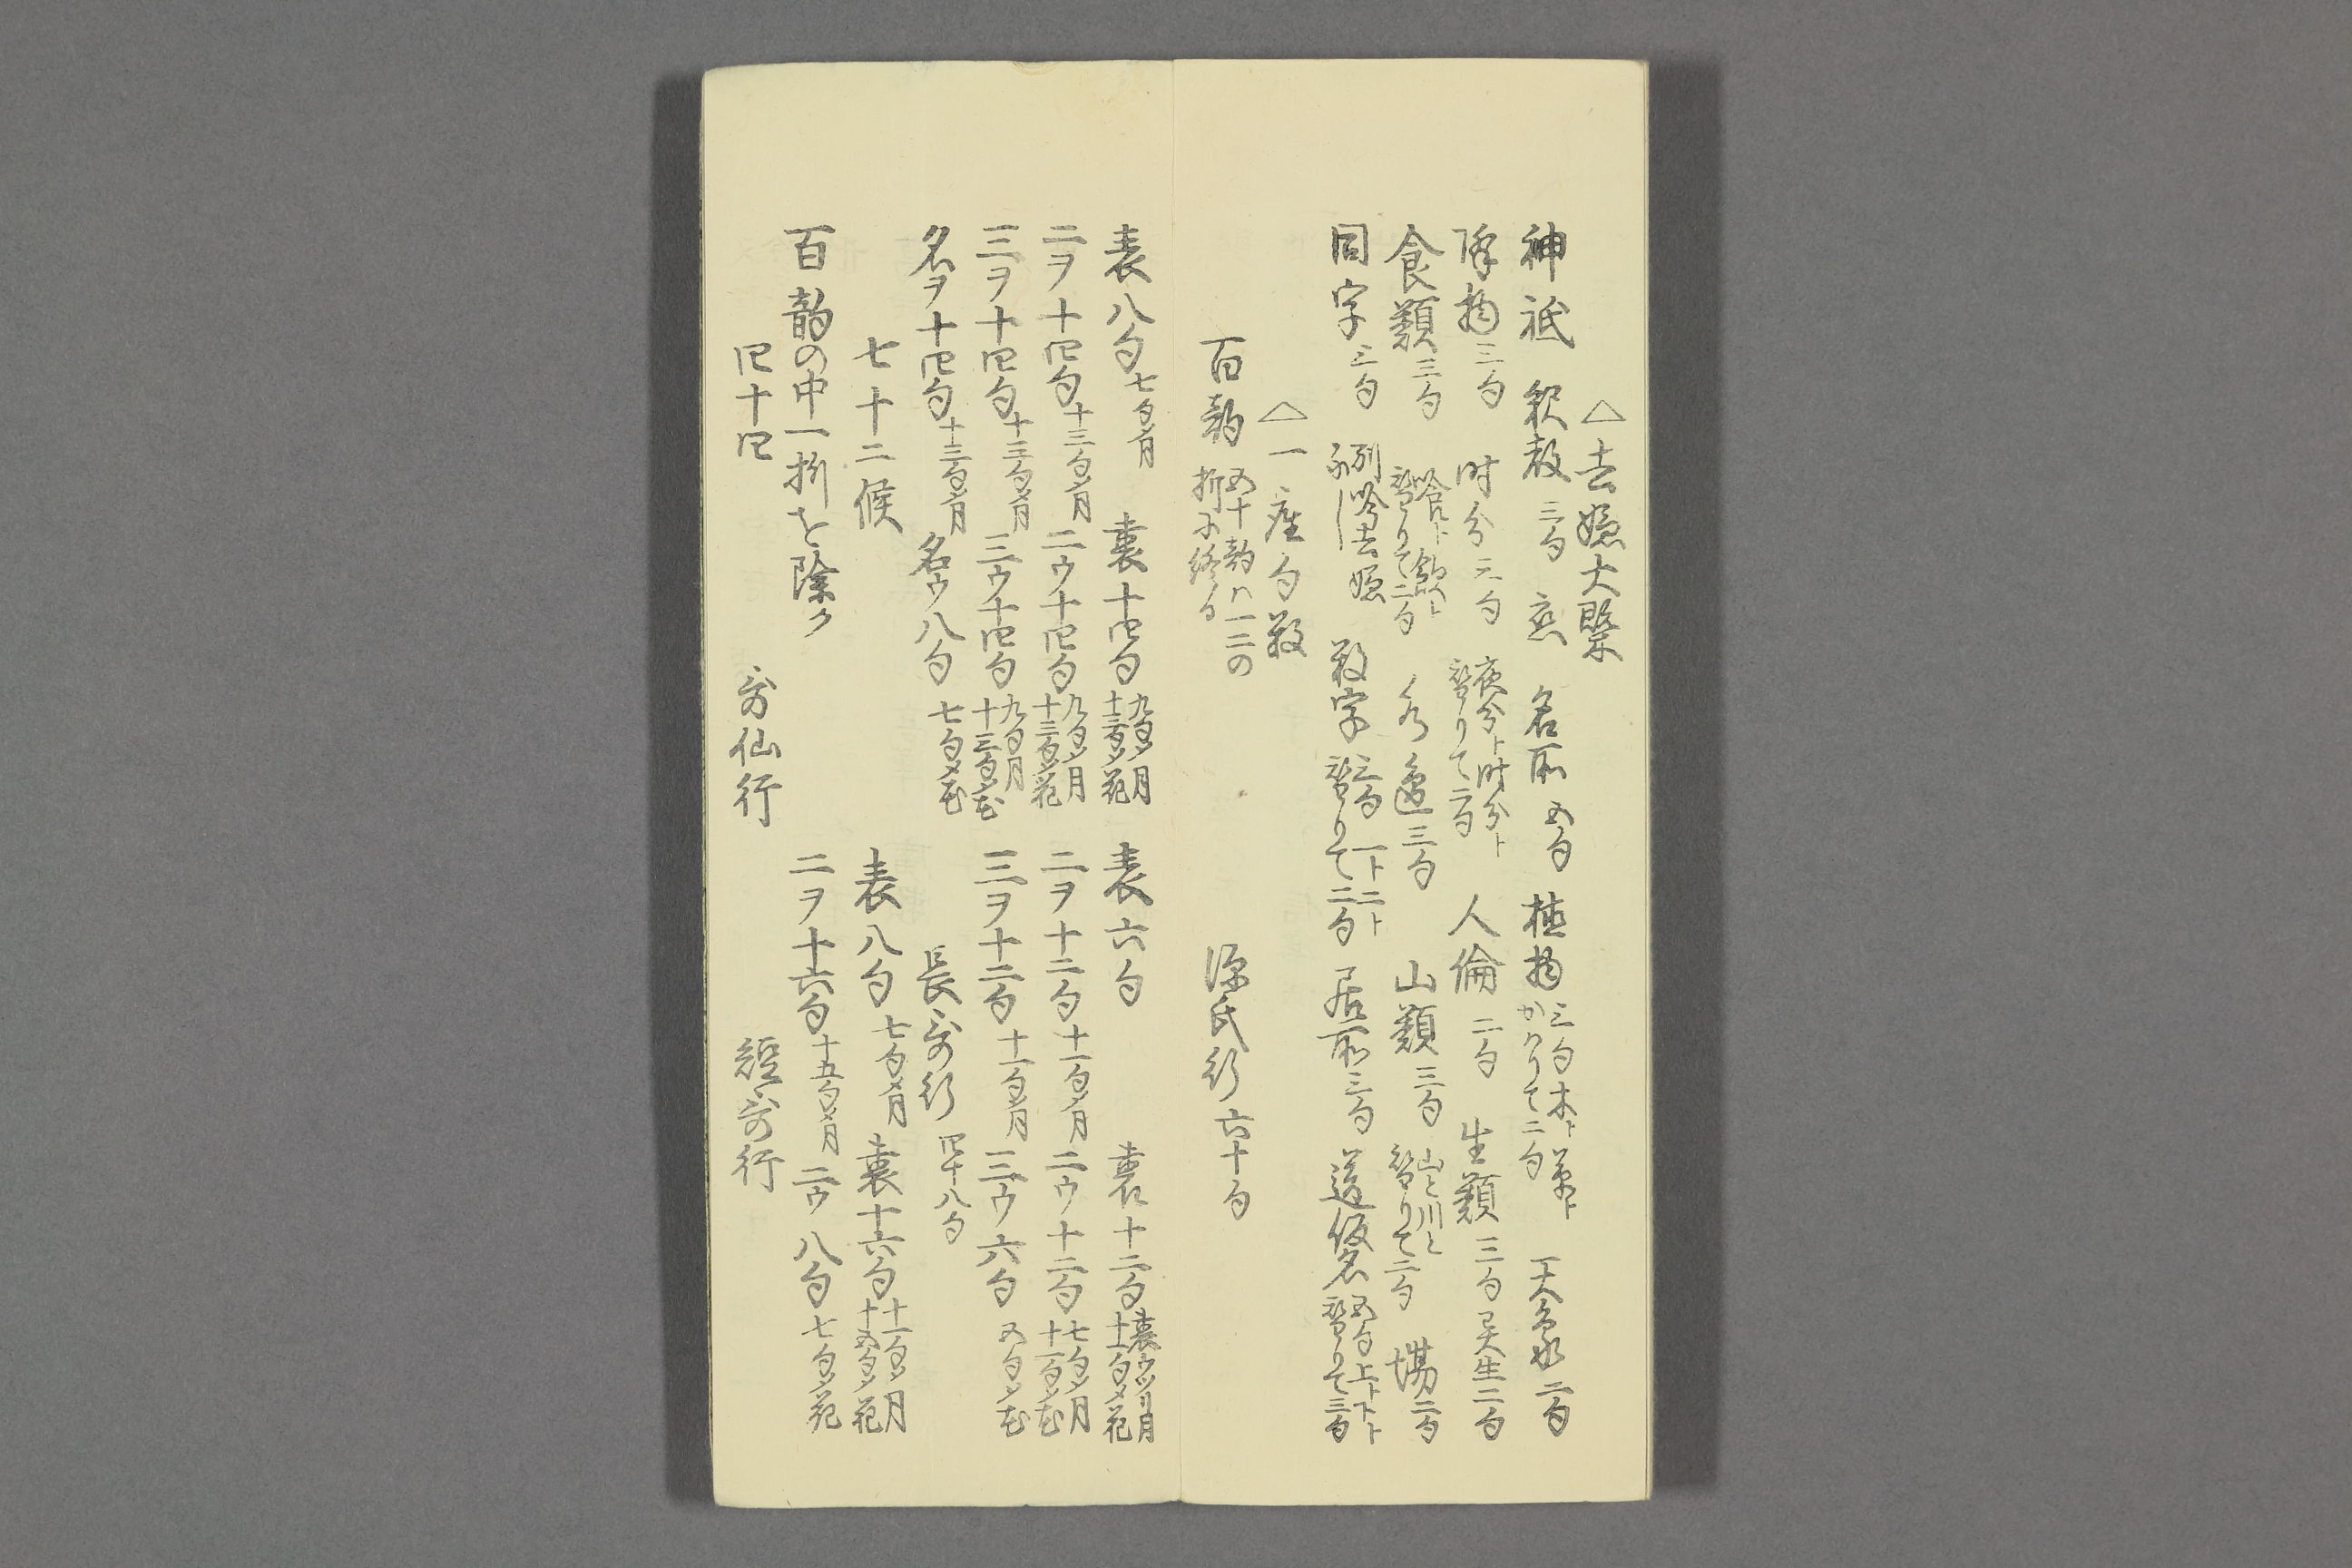 △去嫌大槩
神祇 釈教三句 恋 名所五句 植物三句木ト草ト かハりて二句 天象二句
降物三句 時分三句 夜分ト時分ト 替りて二句 人倫二句 生類三句 異生二句
食類三句 喰ト飲ト 替りて二句 水邉三句 山類三句 山と川と 替りて二句 場二句
同字三句 数字三句 一ト二ト 替りて二句 居所三句 送仮名五句 上ト下ト 替りて三句
△一座句数
百韵 五十韵ハ一二の 折に終る 源氏行六十句
表八句 七句メ月 裏十四句 九句メ月 十三句メ花 表六句 裏十二句 裏ウツリ月 十一句メ花
二ヲ十四句 十三句メ月 二ウ十四句 九句メ月 十三句メ花 二ヲ十二句 十一句メ月 二ウ十二句 七句メ月 十一句メ花
三ヲ十四句 十三句メ月 三ウ十四句 九句メ月 十三句メ花 三ヲ十二句 十一句メ月 三ウ六句 五句メ花
名ヲ十四句 十三句メ月 名ウ八句 七句メ花 長哥行 四十八句
七十二候 表八句 七句メ月 裏十六句 十一句メ月 十五句メ花
百韵の中一折を除ク 二ヲ十六句 十五句メ月 二ウ八句 七句メ花
四十四 哥仙行 短哥行